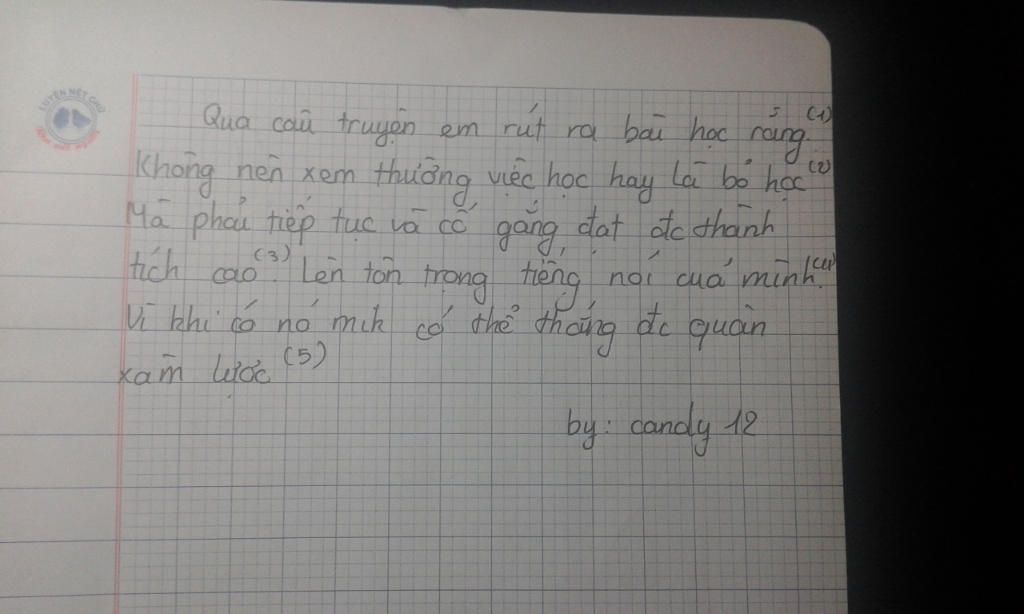 LUYỆN NÉT CHỮ
Qua câu truyện em rút ra bài học rằng. (1)
Không nên xem thường việc học hay là bỏ học (2)
Mà phải tiếp tục và cố gắng đạt đc thành
tích cao (3). Lên tôn trọng tiếng nói của mình. (4)
Vì khi có nó mik có thể thắng đc quân
xâm lược (5)
by: candy 12